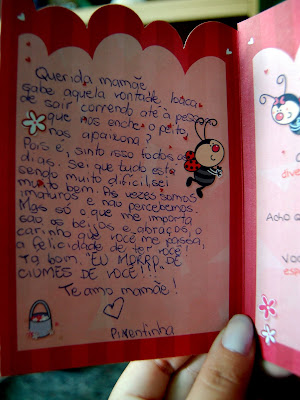 Querida mamãe,
sabe aquela vontade louca
de sair correndo até à pessoa
que nos enche o peito,
nos apaixona?
Pois é, sinto isso todos os
dias. Sei que tudo está
sendo muito difícil, sei
muito bem. Às vezes somos
imaturos e não percebemos.
Mas só o que me importa
são os beijos e abraços, o
carinho que você me passa,
a felicidade de ter você!
Tá bom, "EU MORRO DE
CIÚMES DE VOCÊ!!!"
Te amo mamãe!
Pimentinha
dive
Acho q
Você
espe